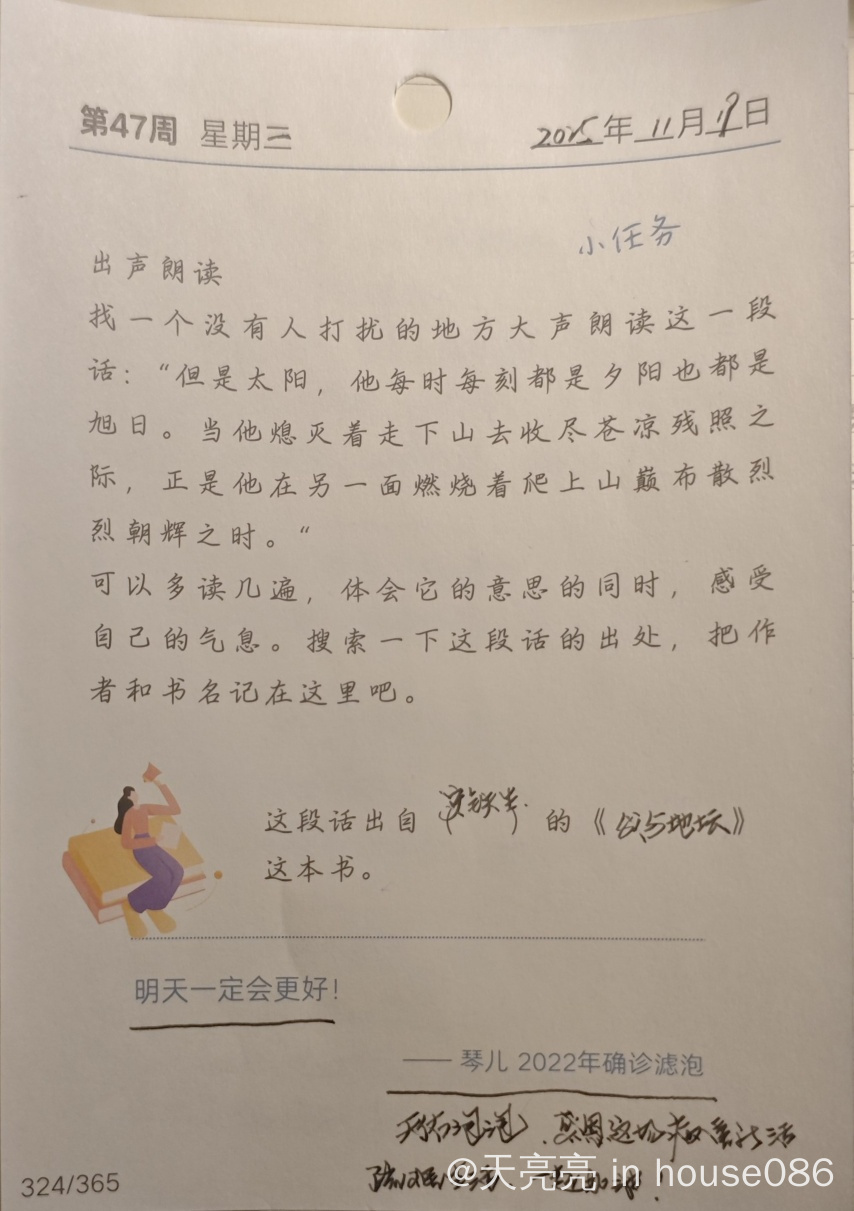 第47周 星期三 2025年11月19日
小任务
出声朗读
找一个没有人打扰的地方大声朗读这一段
话：“但是太阳，他每时每刻都是夕阳也都是
旭日。当他熄灭着走下山去收尽苍凉残照之
际，正是他在另一面燃烧着爬上山巅布散烈
烈朝辉之时。“
可以多读几遍，体会它的意思的同时，感受
自己的气息。搜索一下这段话的出处，把作
者和书名记在这里吧。
这段话出自（史铁生）的《我与地坛》
这本书。
明天一定会更好！
—— 琴儿 2022年确诊滤泡
324/365
@天亮亮 in house086